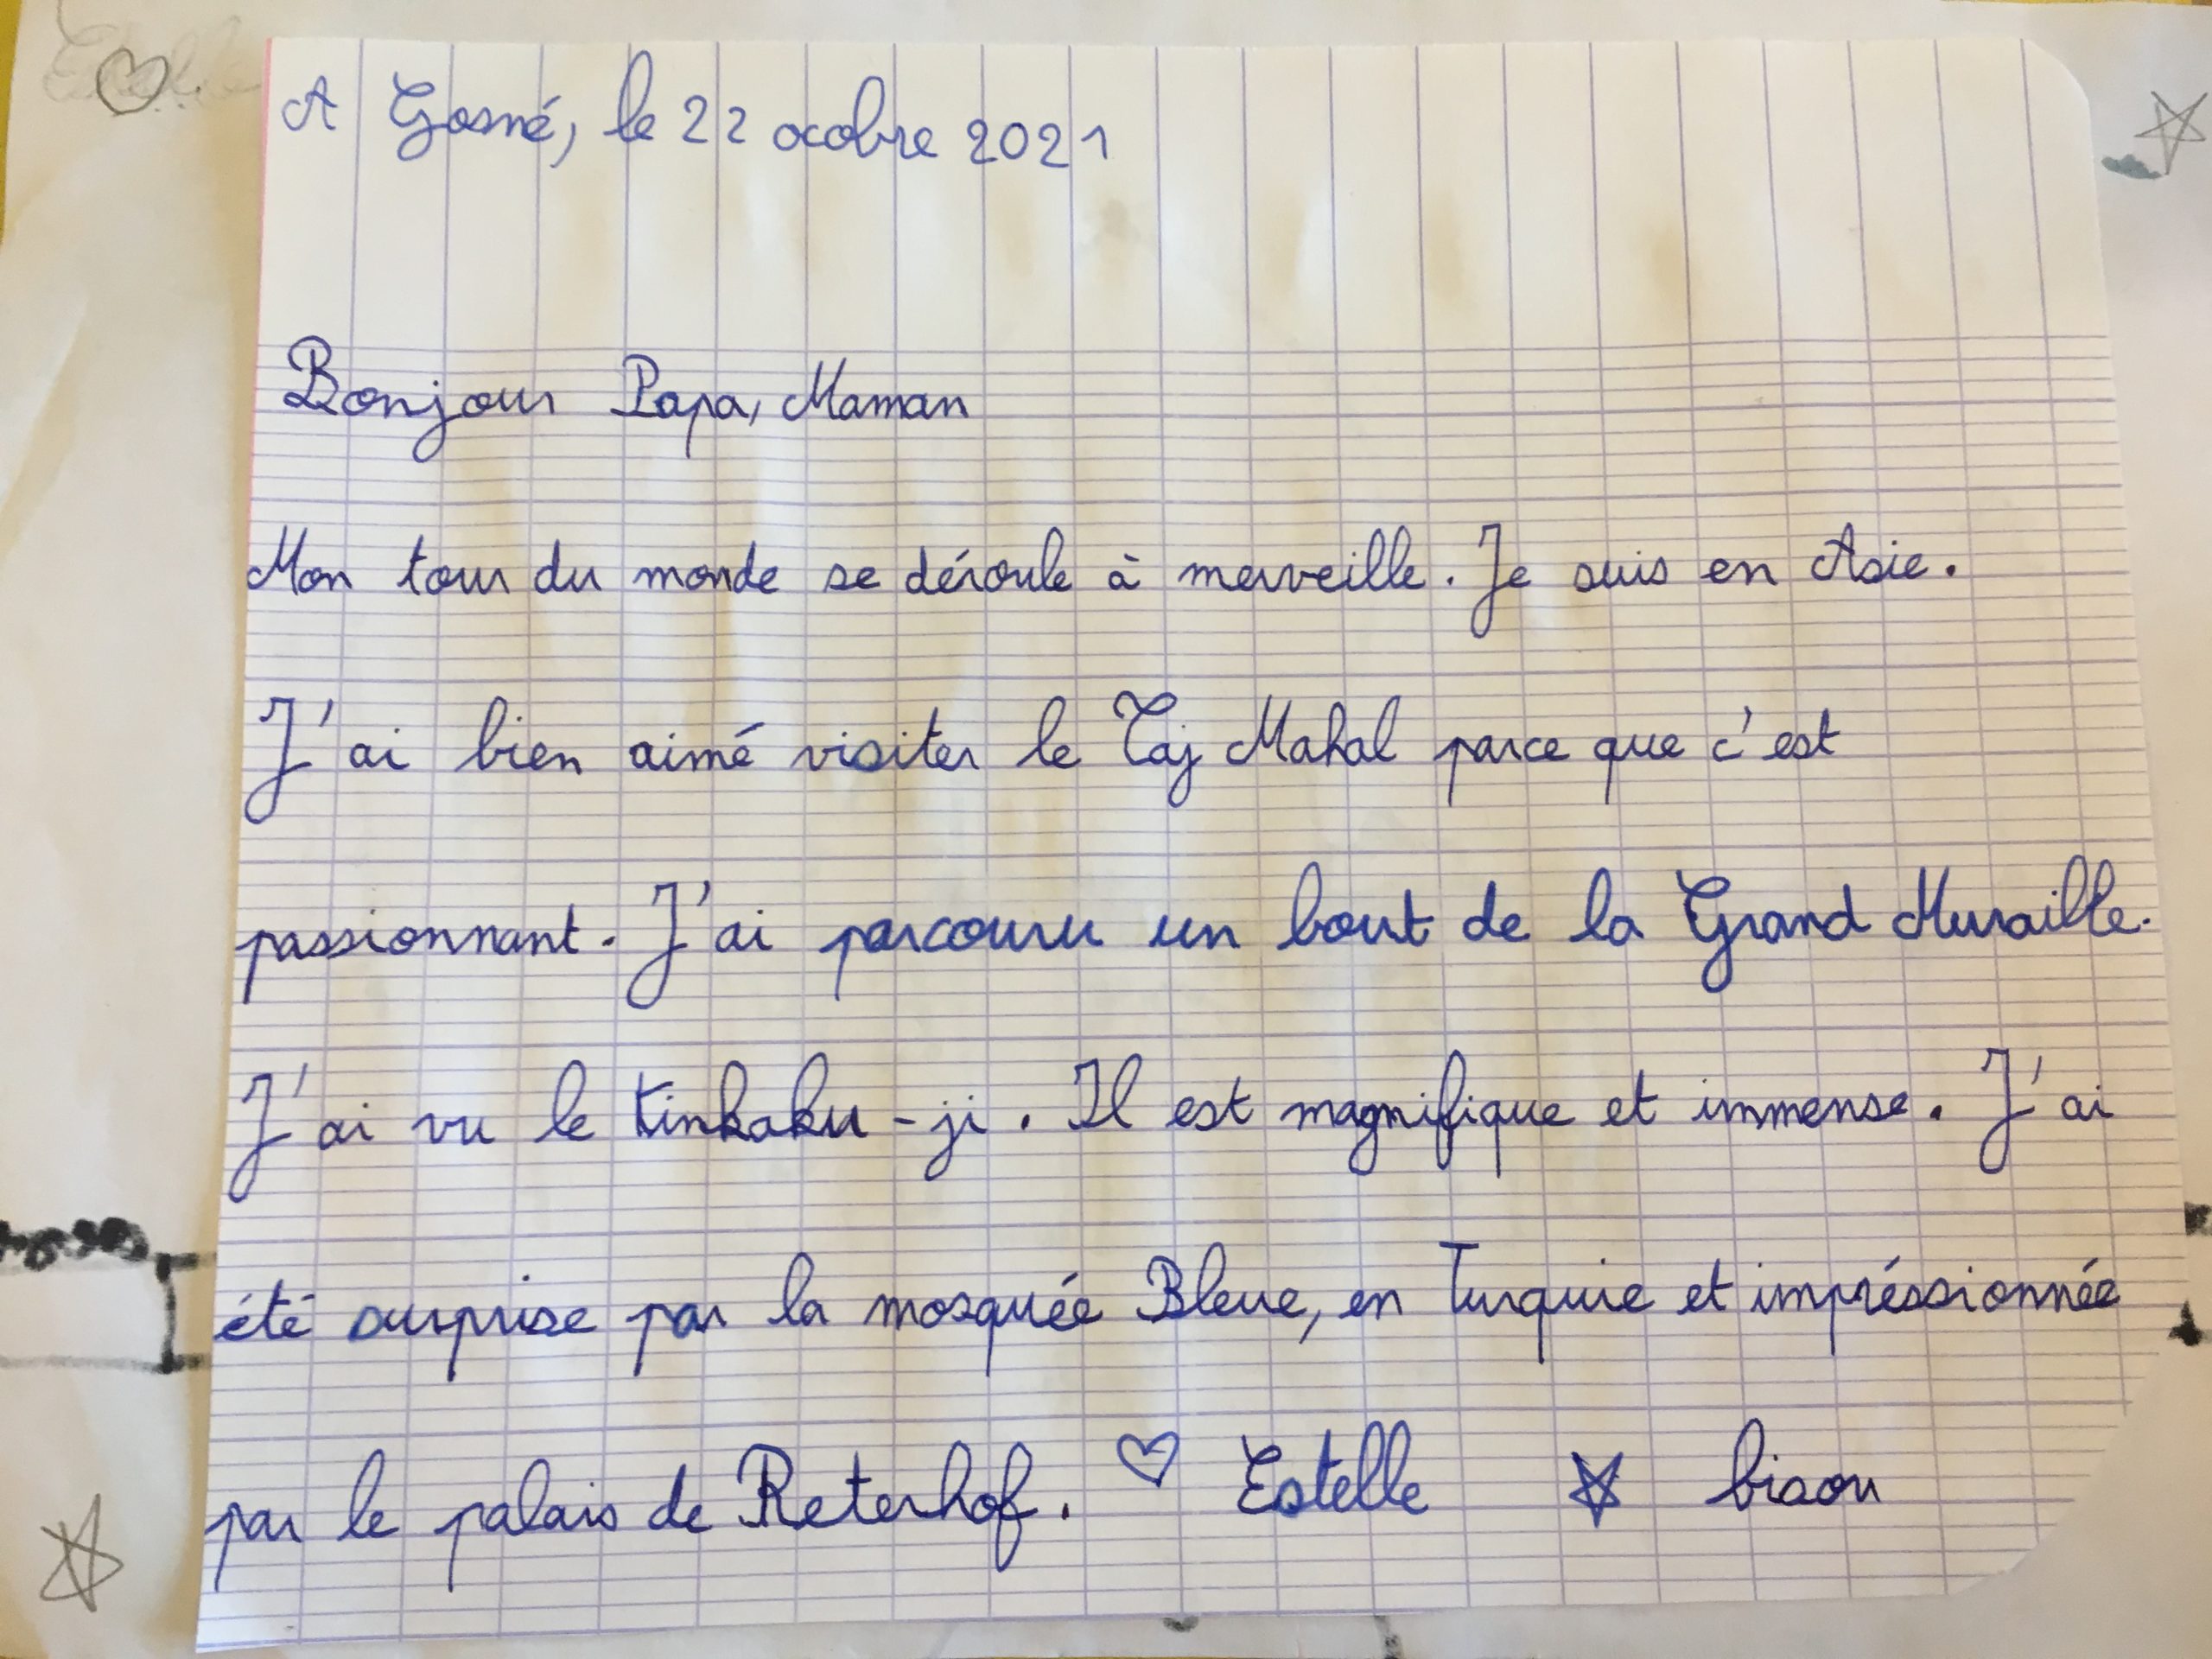 A Gosné, le 22 ocobre 2021
Bonjour Papa, Maman
Mon tour du monde se déroule à merveille. Je suis en Asie.
J'ai bien aimé visiter le Taj Mahal parce que c'est
passionnant. J'ai parcouru un bout de la Grand Muraille.
J'ai vu le Kinkaku-ji. Il est magnifique et immense. J'ai
été surprise par la mosquée Bleue, en Turquie et impréssionnée
par le palais de Reterhof. ♡ Estelle ☆ bisou